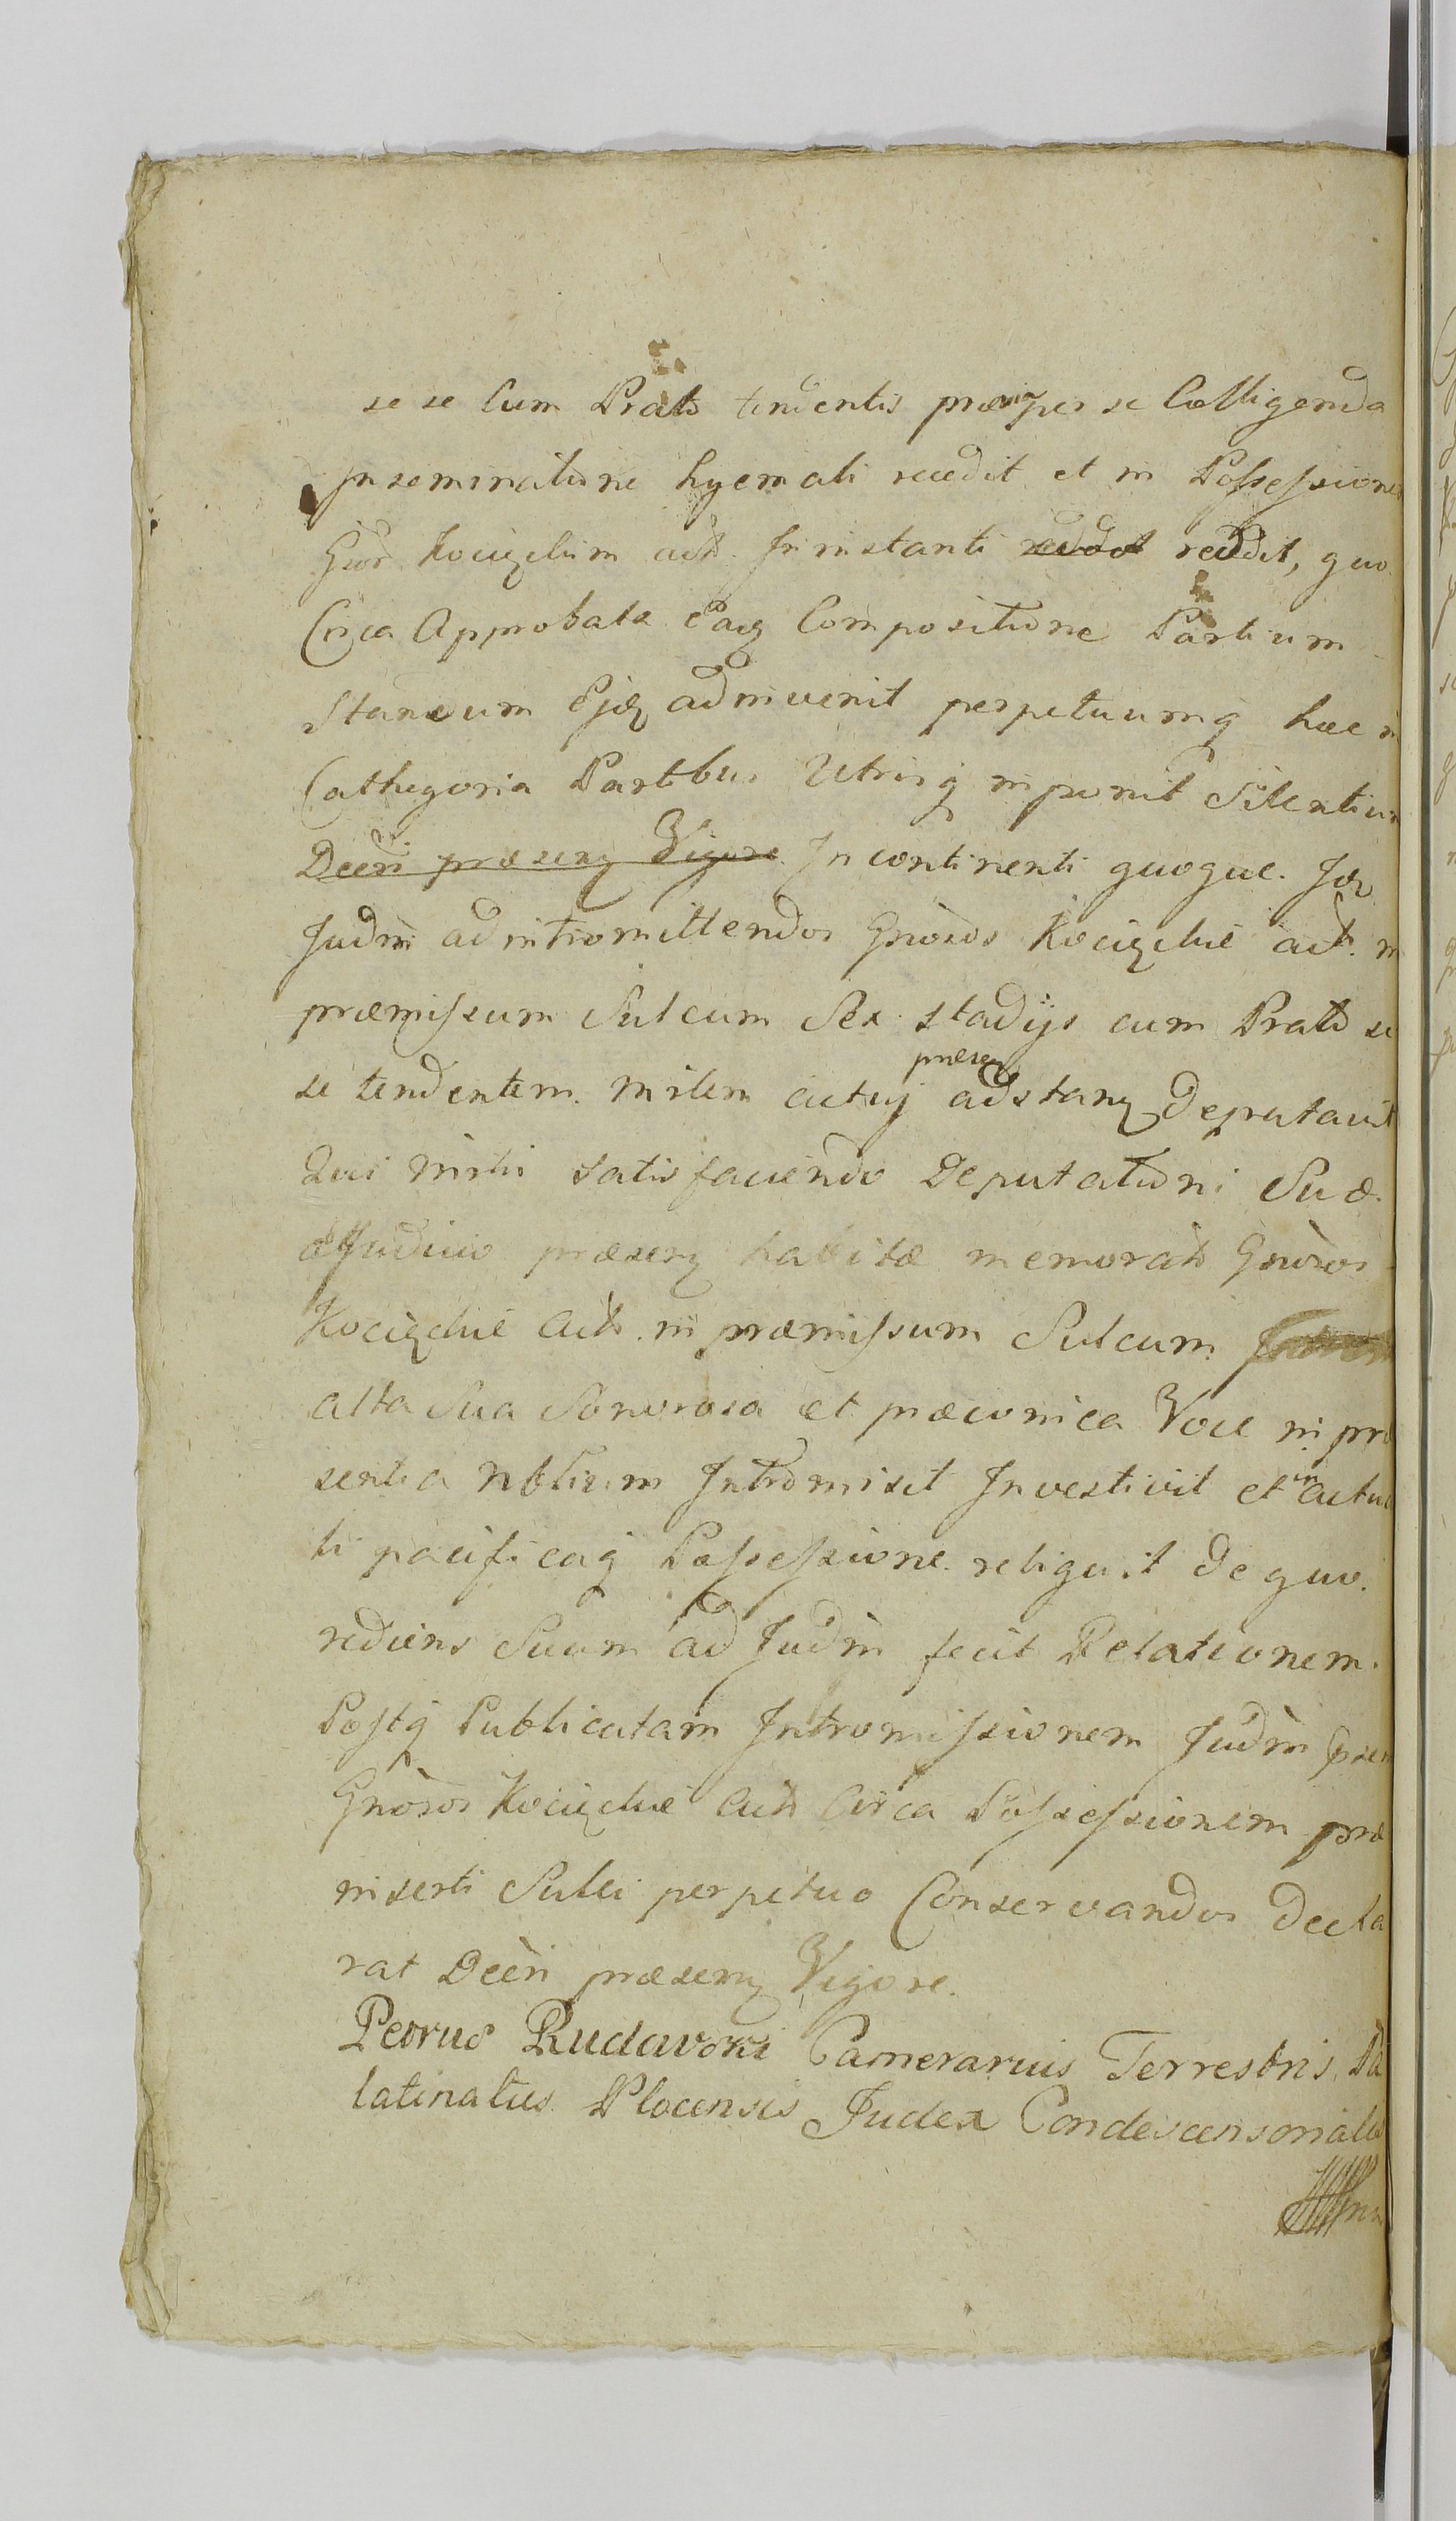 se se Cum Prato tendentis præviæ per se Colligenda
inseminatione hyemali recedit et in Possessionem
Gnor Kocięckim act. In instanti reddit, quo
Circa Approbata eaq Compositione Partium
Standum Ejdq adinvenit perpetuumq hac in
Cathegoria Partibus Utrisq imponit Silentium
Decri præsenq Vigore. In continenti quoque. Jdq
Judm ad intromittendos Gnosos Kocięckie act. in
præmissum Sulcum Sex stadijs cum Prato se
se tendentem. Mrlem actuj præsen adstanq Deputavit
Qui Minri satisfaciendo Deputationi Suæ.
a Judicio præsenq habitæ memorato Gnosos
Kocięckie Acto. in præmissum Sulcum
alta Sua Sonorosa et præconica Voce in præ
sentia Nblium Intromisit Investivit et in actua
li pacificaq Possessione. reliquit de quo.
rediens Suam ad Judm fecit Relationem.
Postq Publicatam Intromissionem Judm præn
Gnosos Kocięckie Acto Circa Possessionem præ
inserti Sulci perpetuo Conservandos Decla
rat Decri præsenq Vigore.
Petrus Rudavski Camerarius Terrestris Pa
latinatus Plocensis Judex Condescensorialis